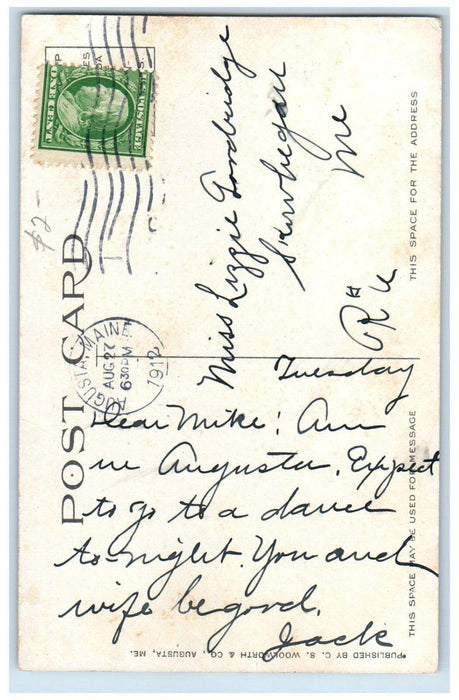 POST CARD
THIS SPACE FOR THE ADDRESS
THIS SPACE MAY BE USED FOR MESSAGE
U.S. POSTAGE
ONE CENT
AUGUSTA, MAINE
AUG 27
630 PM
1912
$2-
Miss Lizzie Goodridge
Skowhegan
Me
R#4
Tuesday
Dear Mike! Am
in Augusta. Expect
to go to a dance
to-night. You and
wife be good.
Jack
PUBLISHED BY C. S. WOOLWORTH & CO., AUGUSTA, ME.